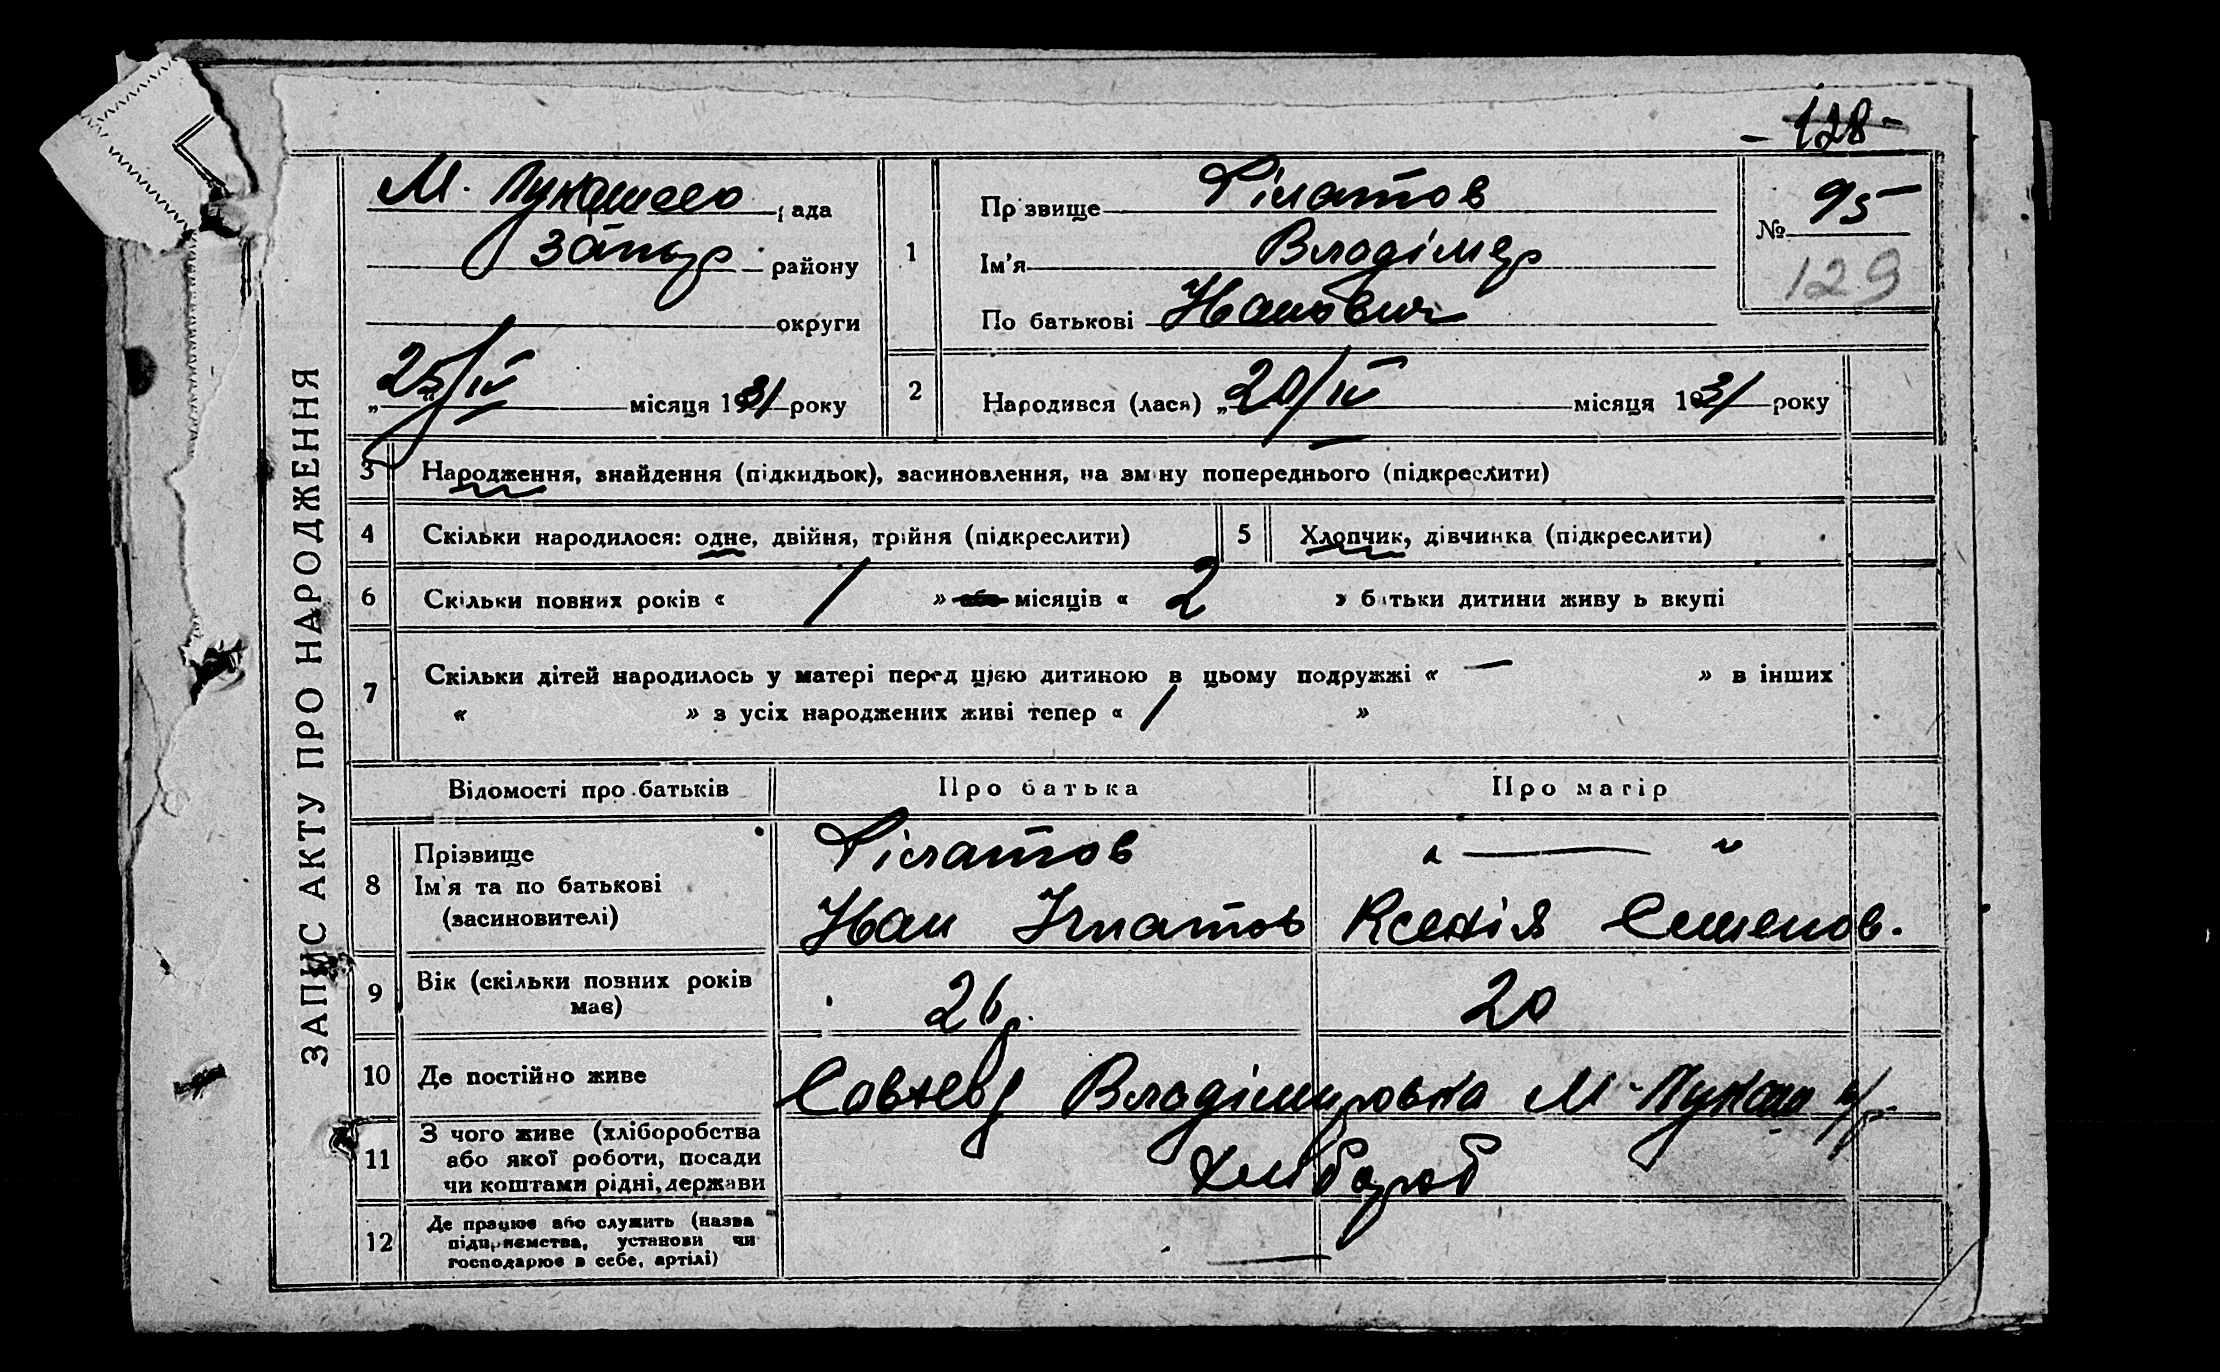 - 128 -
М. Лукашево рада
Запор району
округи
„25/IV місяця 1931 року
1
Прізвище Філатов
Ім'я Владімер
По батькові Иванович
№ 95
129
2
Народився (лася) „20/IV місяця 1931 року
ЗАПИС АКТУ ПРО НАРОДЖЕННЯ
3 Народження, знайдення (підкидьок), засиновлення, на зміну попереднього (підкреслити)
4 Скільки народилося: одне, двійня, трійня (підкреслити) 5 Хлопчик, дівчинка (підкреслити)
6 Скільки повних років « / » або місяців « 2 » батьки дитини живуть вкупі
7 Скільки дітей народилось у матері перед цією дитиною в цьому подружжі « — » в інших
« » з усіх народжених живі тепер « / »
Відомості про батьків Про батька Про матір
8 Прізвище Філатов " — "
Ім'я та по батькові Иван Игнатов Ксенія Семенов.
(засиновителі)
9 Вік (скільки повних років має) 26 20
10 Де постійно живе Владімировка М-Лукаш с/р
11 З чого живе (хліборобства
або якої роботи, посади
чи коштами рідні, держави Хлібороб
12 Де працює або служить (назва
підприємства, установи чи
господарює в себе, артілі) —